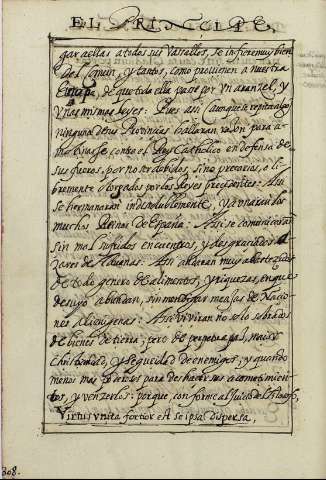 EL PRINCIPE,
gar a ellas a todos sus Vassallos, se infiere muy bien
del Comun, y tantos, como provienen a nuestra
de que toda ella passe por Un aranzel, y
Unas mismas leyes: Pues assi
ninguna de sus Provincias hallaran razon para a
contra el Rey Catholico en defensa de
sus fueros, por no ser debidos, sino precarios, o li
bremente otorgados por los Reyes precedentes: Assi
se hermanaran indisolublemente, y a unaran los
muchos Reinos de España: Assi se comunicaran
sin mal sufridos encuentros, y desgraciados
zares de Aduanas: Assi andaran muy abastezidos
de todo genero de alimentos, y riquezas, en que
de suyo abundan, sin mendigar mealas de Nacio
nes alienigenas: Assi viviran no solo sobrados
de bienes de tierra; pero de perpetua paz, maior
Christiandad, y seguridad de enemigos, y quando
menos mas poderosos para deshacer sus acometimien
tos, y vencerlos: porque, conforme al juicio del Filosofo,
Virtus unita fortior est se ipsa dispersa,
308.